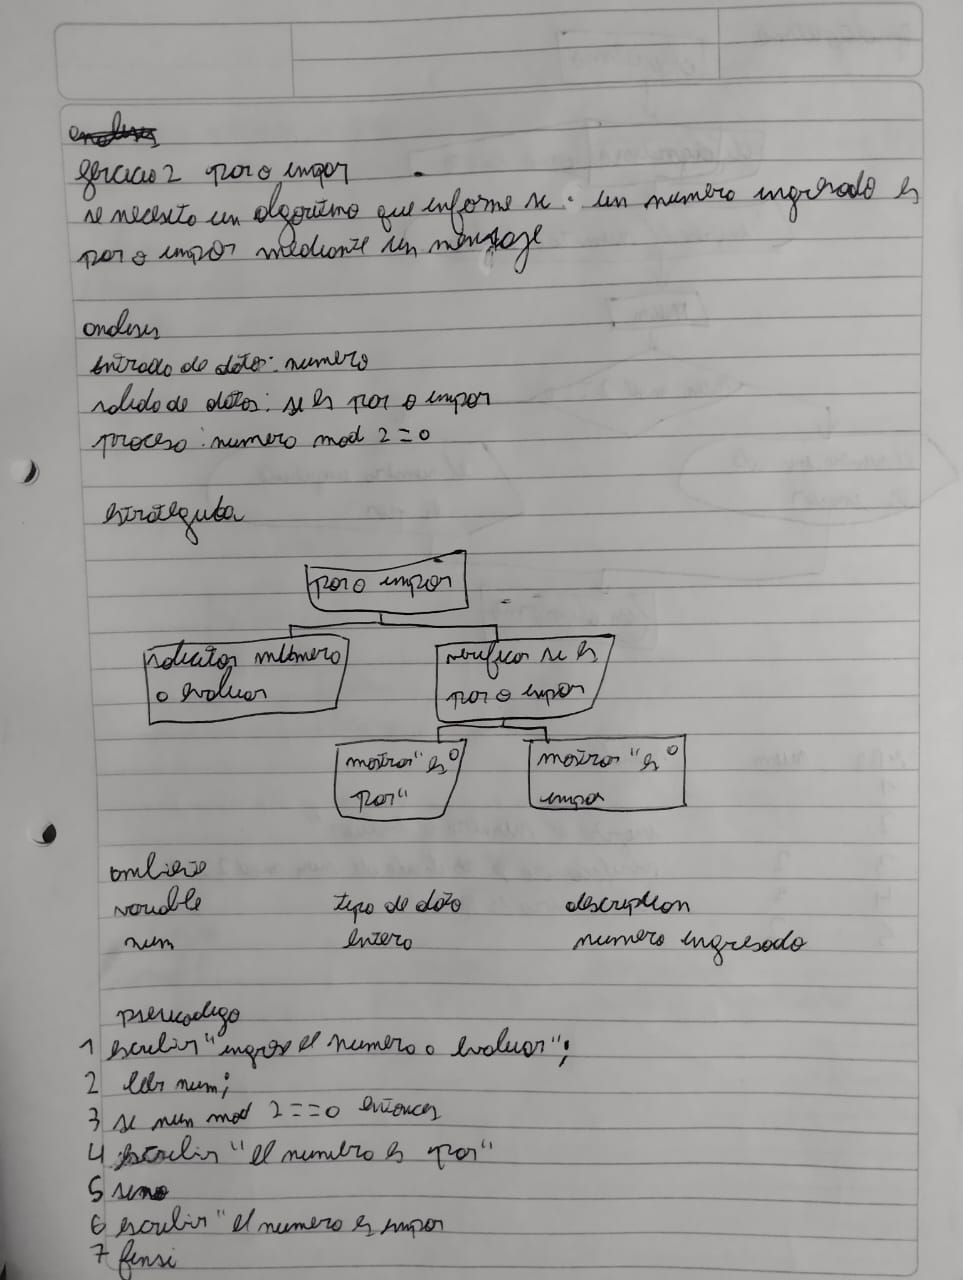 ejercicio 2 par o impar
se necesita un algoritmo que informe si un numero ingresado es
par o impar mediante un mensaje
analisis
entrada de datos: numero
salida de datos: si es par o impar
proceso: numero mod 2 = 0
estrategia
par o impar
solicitar número
a evaluar
verificar si es
par o impar
mostrar "es
par"
mostrar "es
impar
ambiente
variable tipo de dato descripcion
num entero numero ingresado
pseucodigo
1 escribir "ingrese el numero a evaluar";
2 leer num;
3 si num mod 2 == 0 entonces
4 escribir "el numero es par"
5 sino
6 escribir "el numero es impar
7 finsi